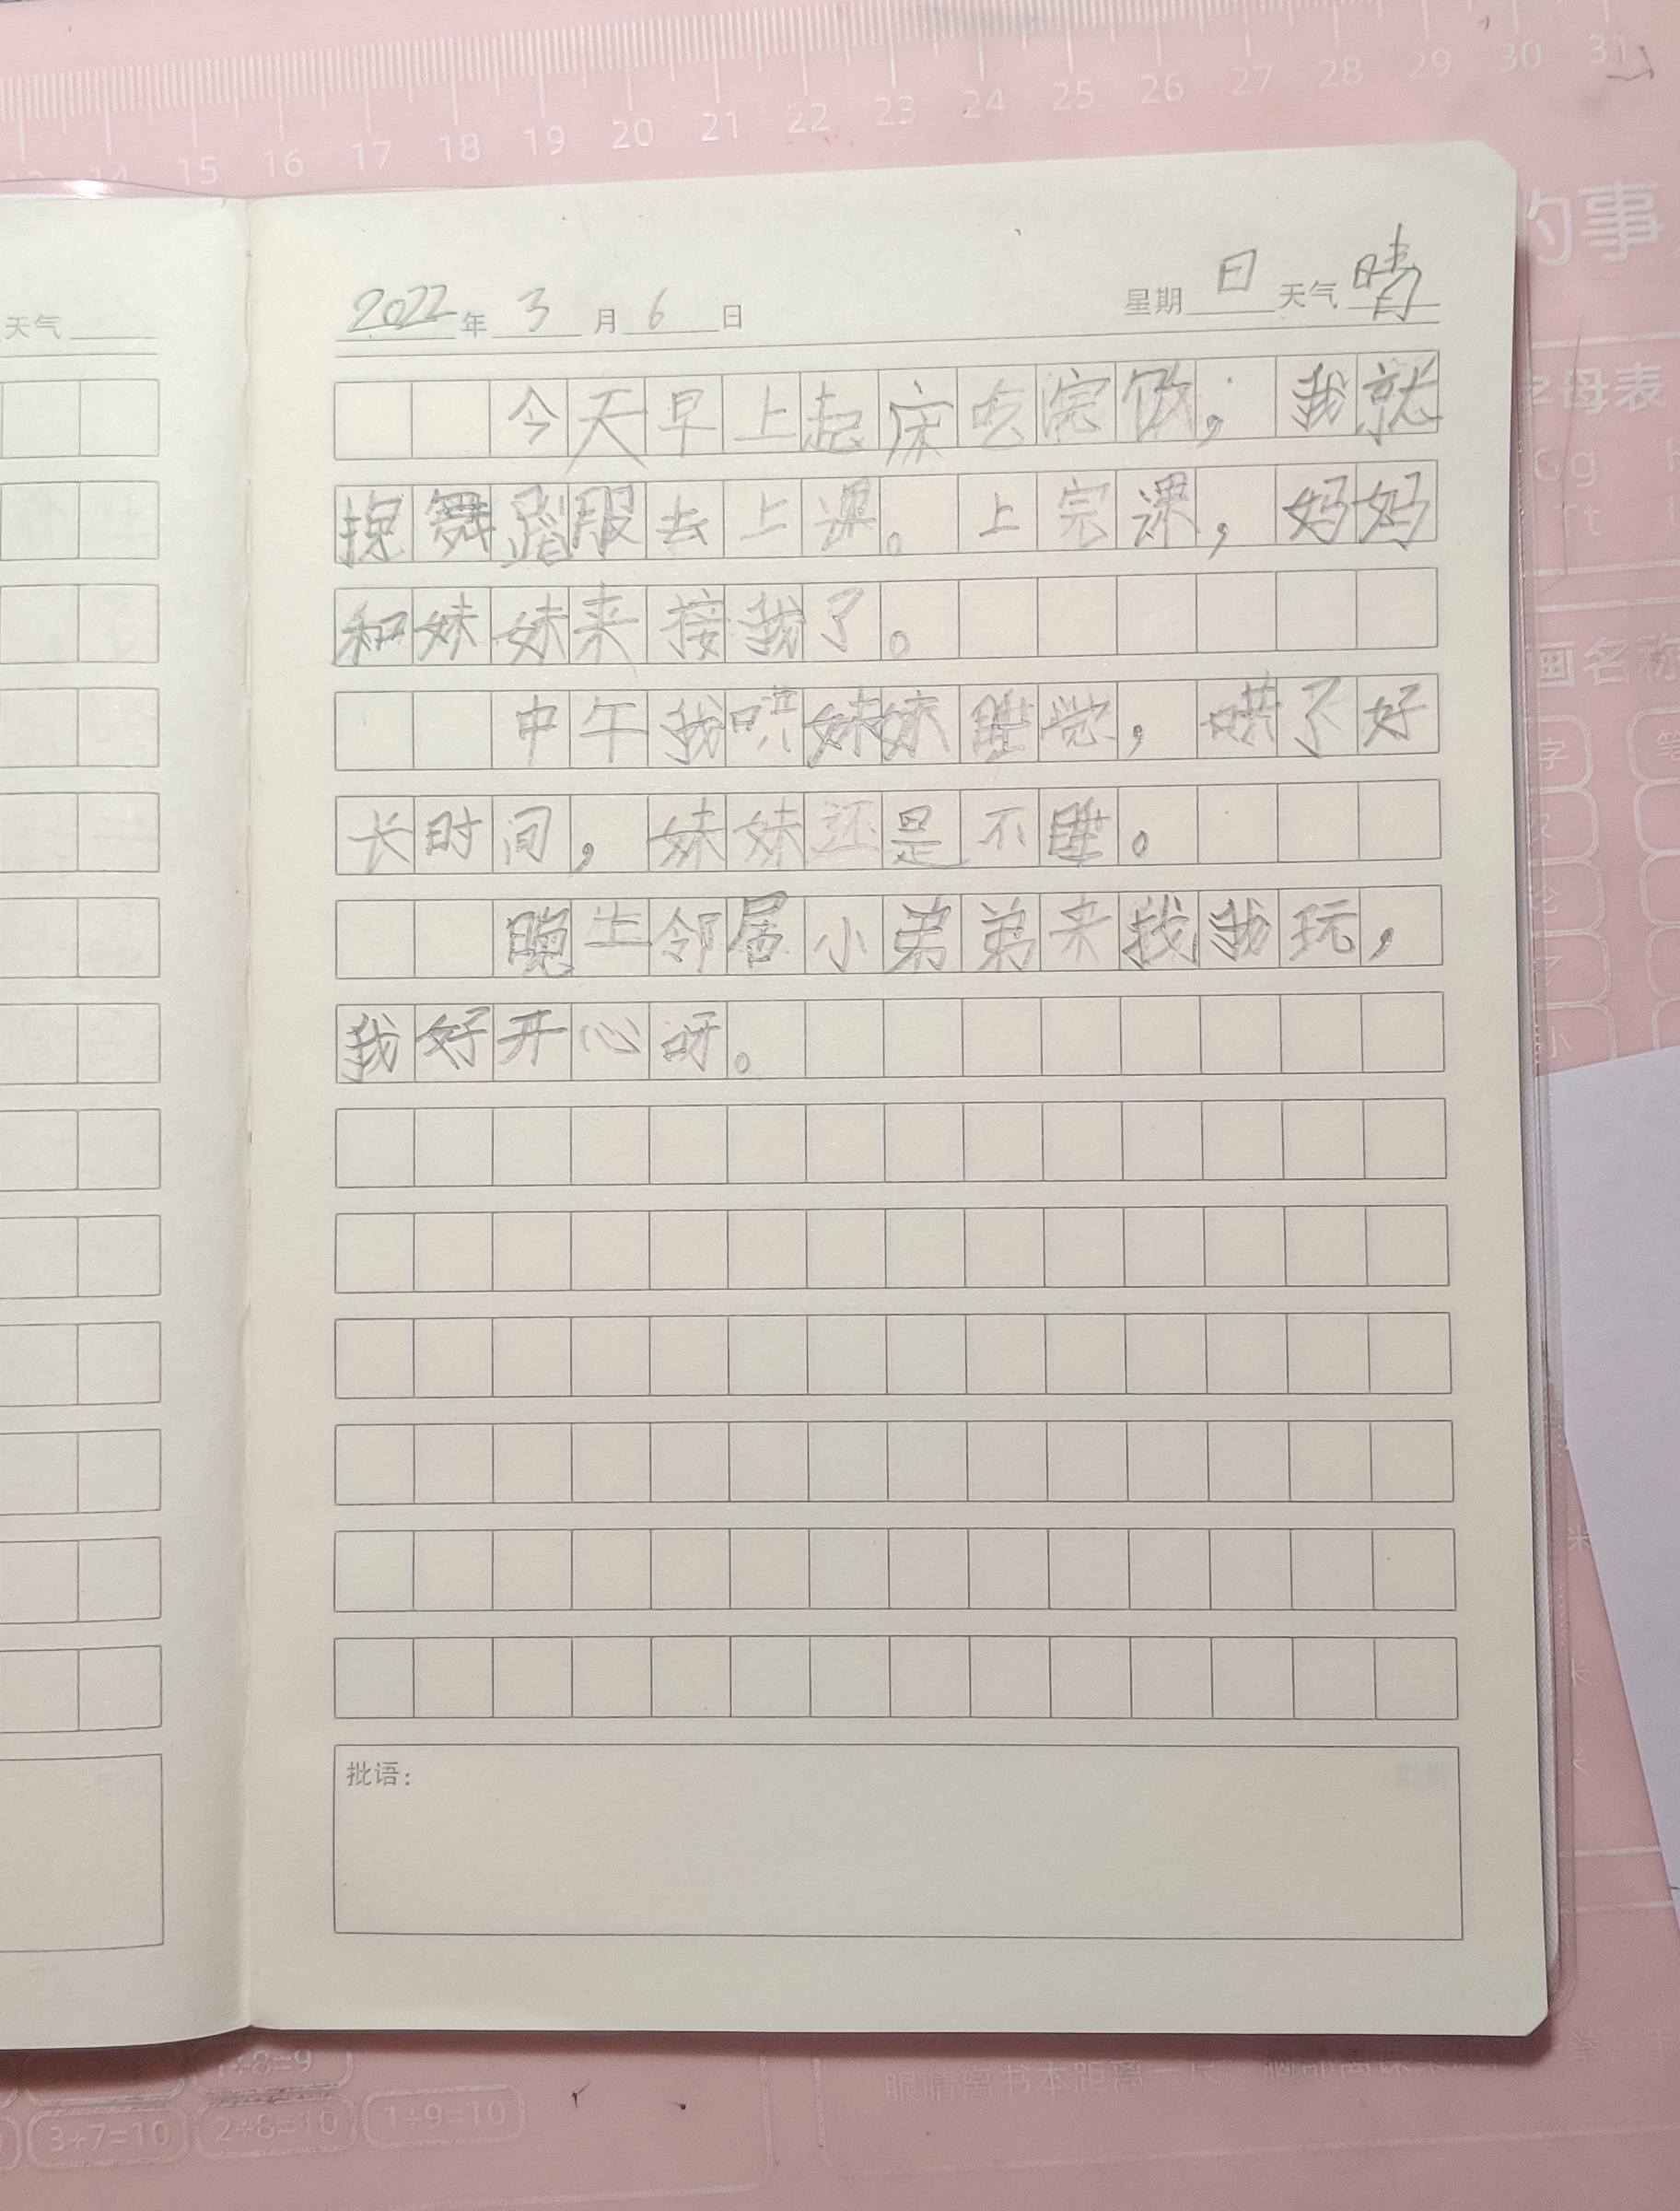 13 14 15 16 17 18 19 20 21 22 23 24 25 26 27 28 29 30 31
的事
天气
2022年3月6日 星期日天气晴
今天早上起床吃完饭,我就
换舞蹈服去上课。上完课,妈妈
和妹妹来接我了。
中午我哄妹妹睡觉,哄了好
长时间,妹妹还是不睡。
晚上邻居小弟弟来找我玩,
我好开心呀。
批语:
字母表
Gg
画名称
字
小
米
1+8=9
3+7=10 2+8=10 1+9=10
眼睛离书本距离一尺,